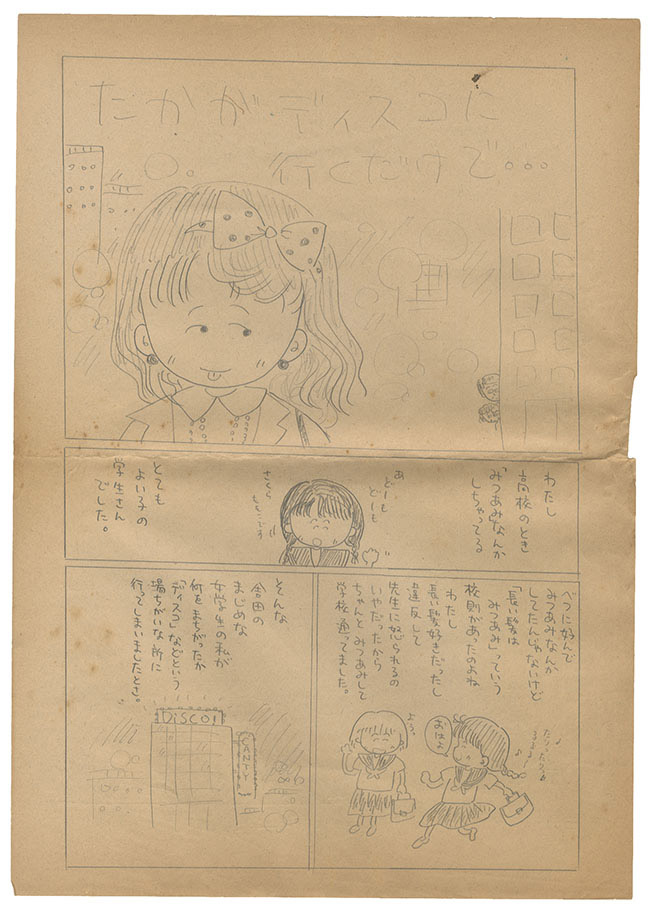 たかがディスコに
行くだけで・・・
わたし
高校のとき
みつあみなんか
しちゃってる
あ
どーも
どーも
さくら
ももこです
とても
よい子の
学生さん
でした。
べつに好んで
みつあみなんか
してたんじゃないけど
「長い髪は
みつあみ」っていう
校則があったのよね
わたし
長い髪好きだったし
違反して
先生に怒られるの
いやだったから
ちゃんとみつあみして
学校通ってました。
♪
♪
おはよ
よう。
そんな
田舎の
まじめな
女学生の私が
何をまちがったか
「ディスコ」などという
場ちがいな所に
行ってしまいましたとさ。
DiSCO!
CANTY